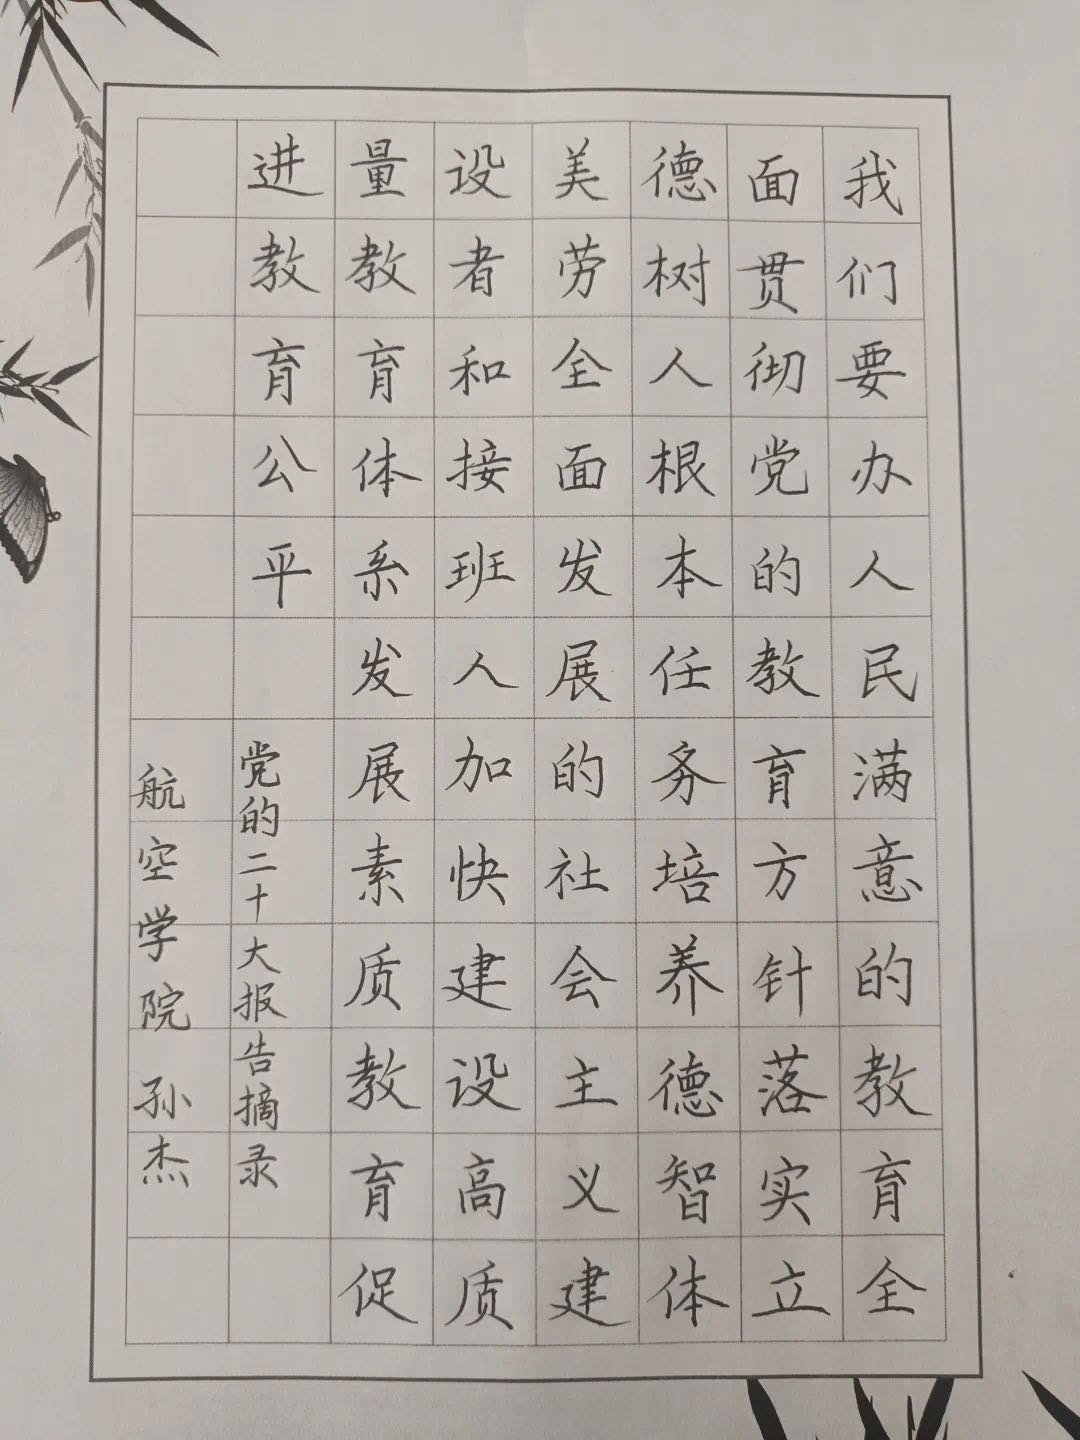 我们要办人民满意的教育全
面贯彻党的教育方针落实立
德树人根本任务培养德智体
美劳全面发展的社会主义建
设者和接班人加快建设高质
量教育体系发展素质教育促
进教育公平
党的二十大报告摘录
航空学院 孙杰